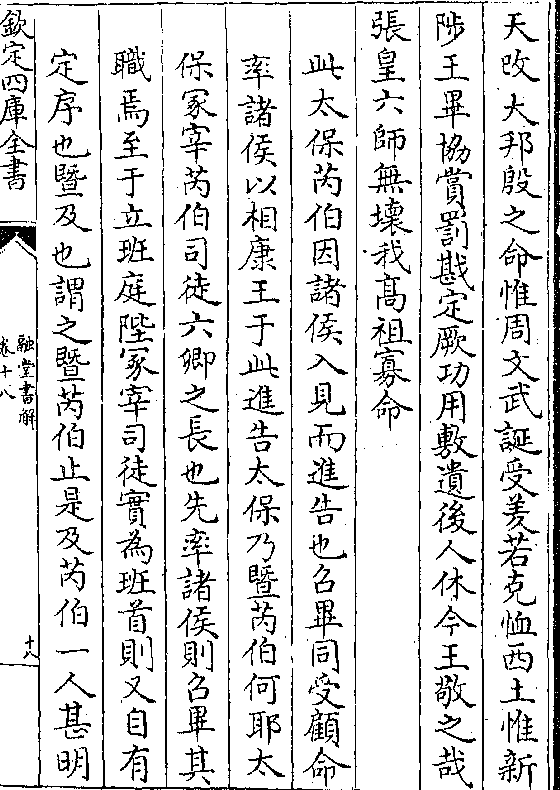 天改大邦殷之命惟周文武誕受羑若克恤西土惟新
陟王畢協賞罰戡定厥功用敷遺後人休今王敬之哉
張皇六師無壞我髙祖寡命
此太保芮伯因諸侯入見而進告也召畢同受顧命
率諸侯以相康王于此進告太保乃暨芮伯何耶太
保冢宰芮伯司徒六卿之長也先率諸侯則召畢其
職焉至于立班庭陛冢宰司徒實為班首則又自有
定序也暨及也謂之暨芮伯止是及芮伯一人甚明
欽定四庫全書
融堂書解
卷十八
十八